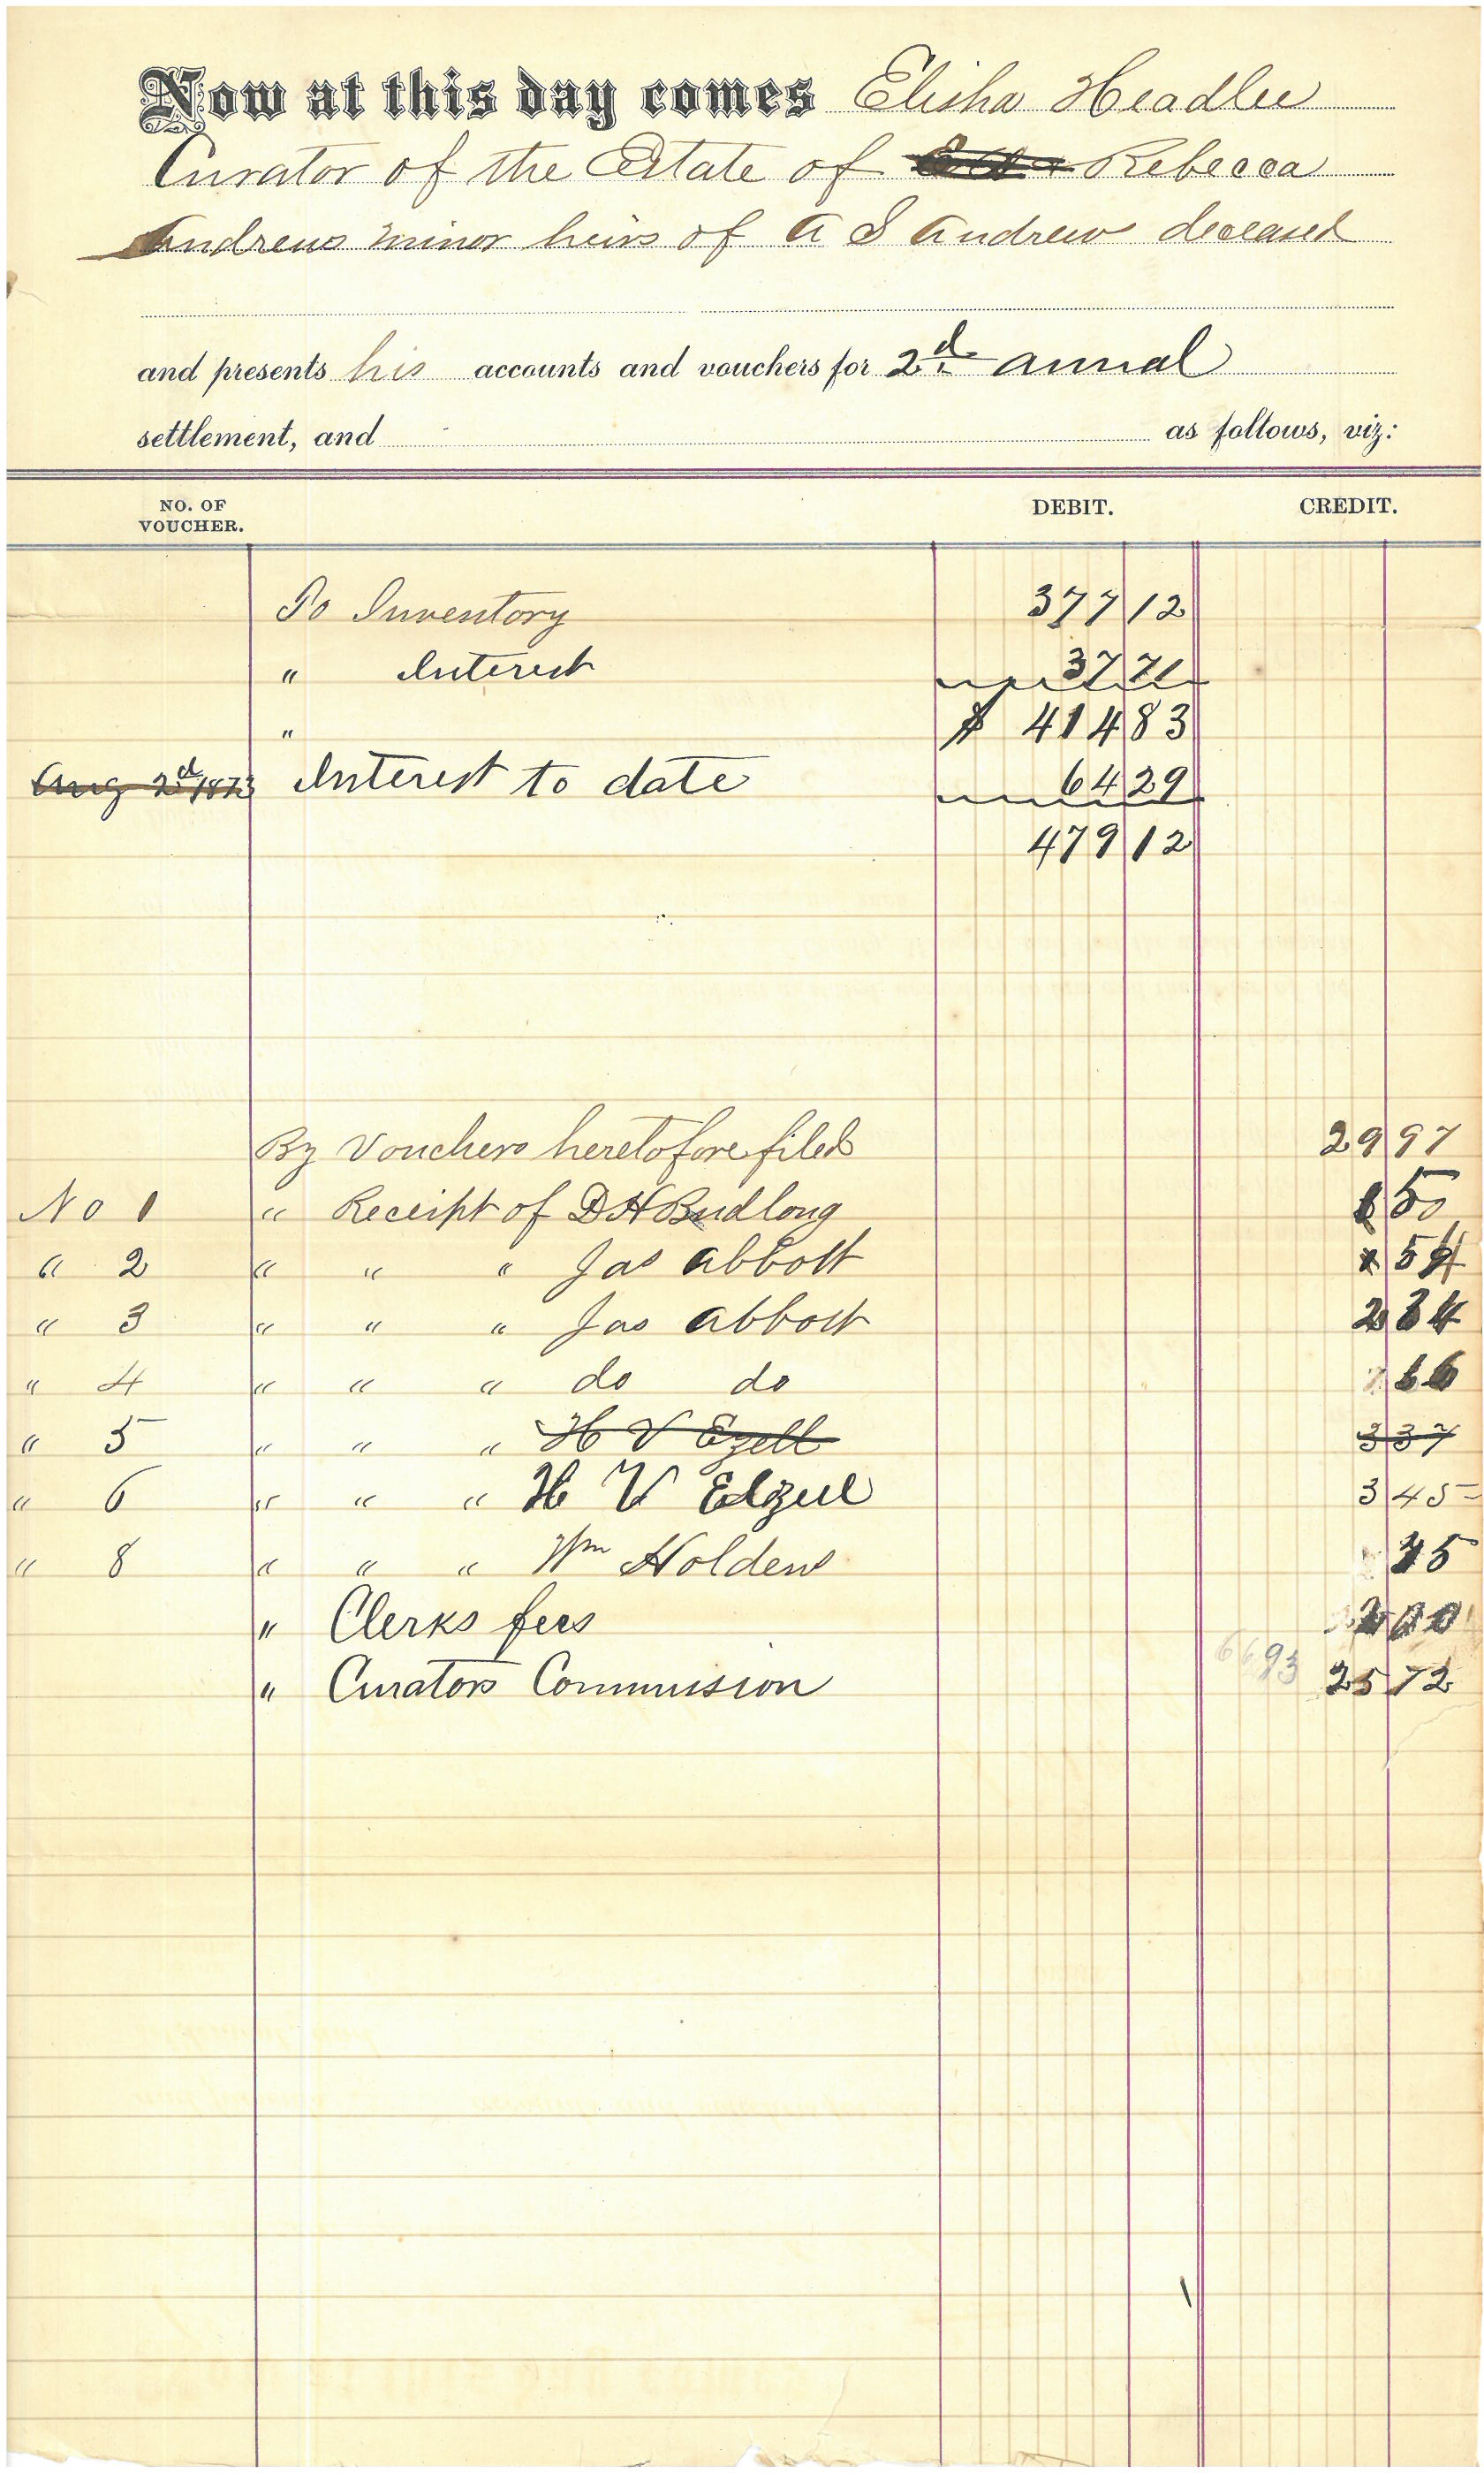 Now at this day comes Elisha Headlee
Curator of the Estate of Rebecca
Andrews minor heirs of A S Andrew deceased
and presents his accounts and vouchers for 2d annual
settlement, and as follows, viz:
NO. OF VOUCHER. DEBIT. CREDIT.
To Inventory 377 12
" Interest 37 71
" $ 414 83
Aug 2d 1873 Interest to date 64 29
479 12
By Vouchers heretofore filed 29 97
No 1 " Receipt of D H Budlong 50
" 2 " " " Jas Abbott 54
" 3 " " " Jas Abbott 2 34
" 4 " " " do do 66
" 5 " " " H V Ezell 3 37
" 6 " " " H V Edzell 3 45
" 8 " " " Wm Holden 35
" Clerks fees 00
66 93
" Curators Commission 25 72